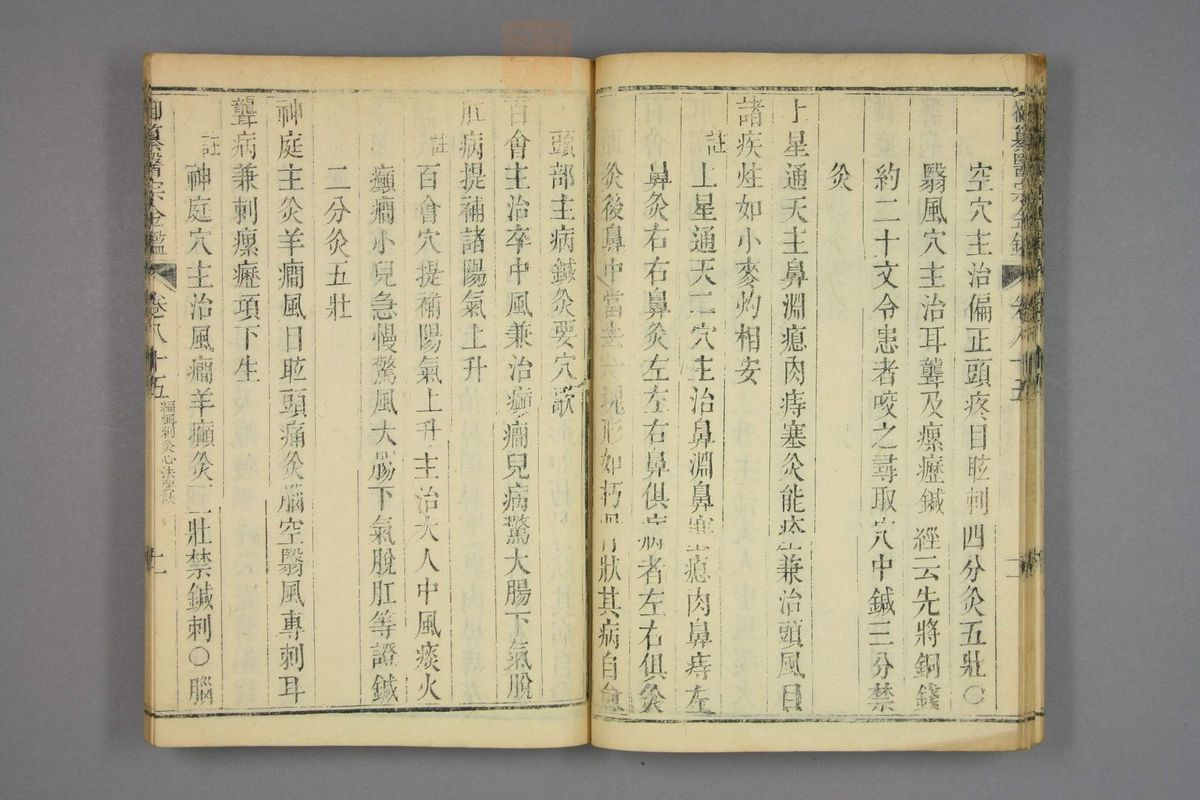 御纂醫宗金鑑 卷八十五
空穴主治偏正頭疼目眩刺四分灸五壯〇
翳風穴主治耳聾及瘰癧鍼 經云先將銅錢
約二十文令患者咬之尋取穴中鍼三分禁
灸
上星通天主鼻淵瘜肉痔塞灸能痊兼治頭風目
諸疾炷如小麥灼相安
註 上星通天二穴主治鼻淵鼻塞瘜肉鼻痔左
鼻灸右右鼻灸左左右鼻俱病者左右俱灸
灸後鼻中當去一塊形如朽骨狀其病自愈
頭部主病鍼灸要穴歌
百會主治卒中風兼治癲癇兒病驚大腸下氣脫
肛病提補諸陽氣上升
註 百會穴提補陽氣上升主治大人中風痰火
癲癇小兒急慢驚風大腸下氣脫肛等證鍼
二分灸五壯
神庭主灸羊癇風目眩頭痛灸腦空翳風專刺耳
聾病兼刺瘰癧項下生
註 神庭穴主治風癇羊癲灸三壯禁鍼刺〇腦
御纂醫宗金鑑 卷八十五 編輯刺灸心法要訣 十一